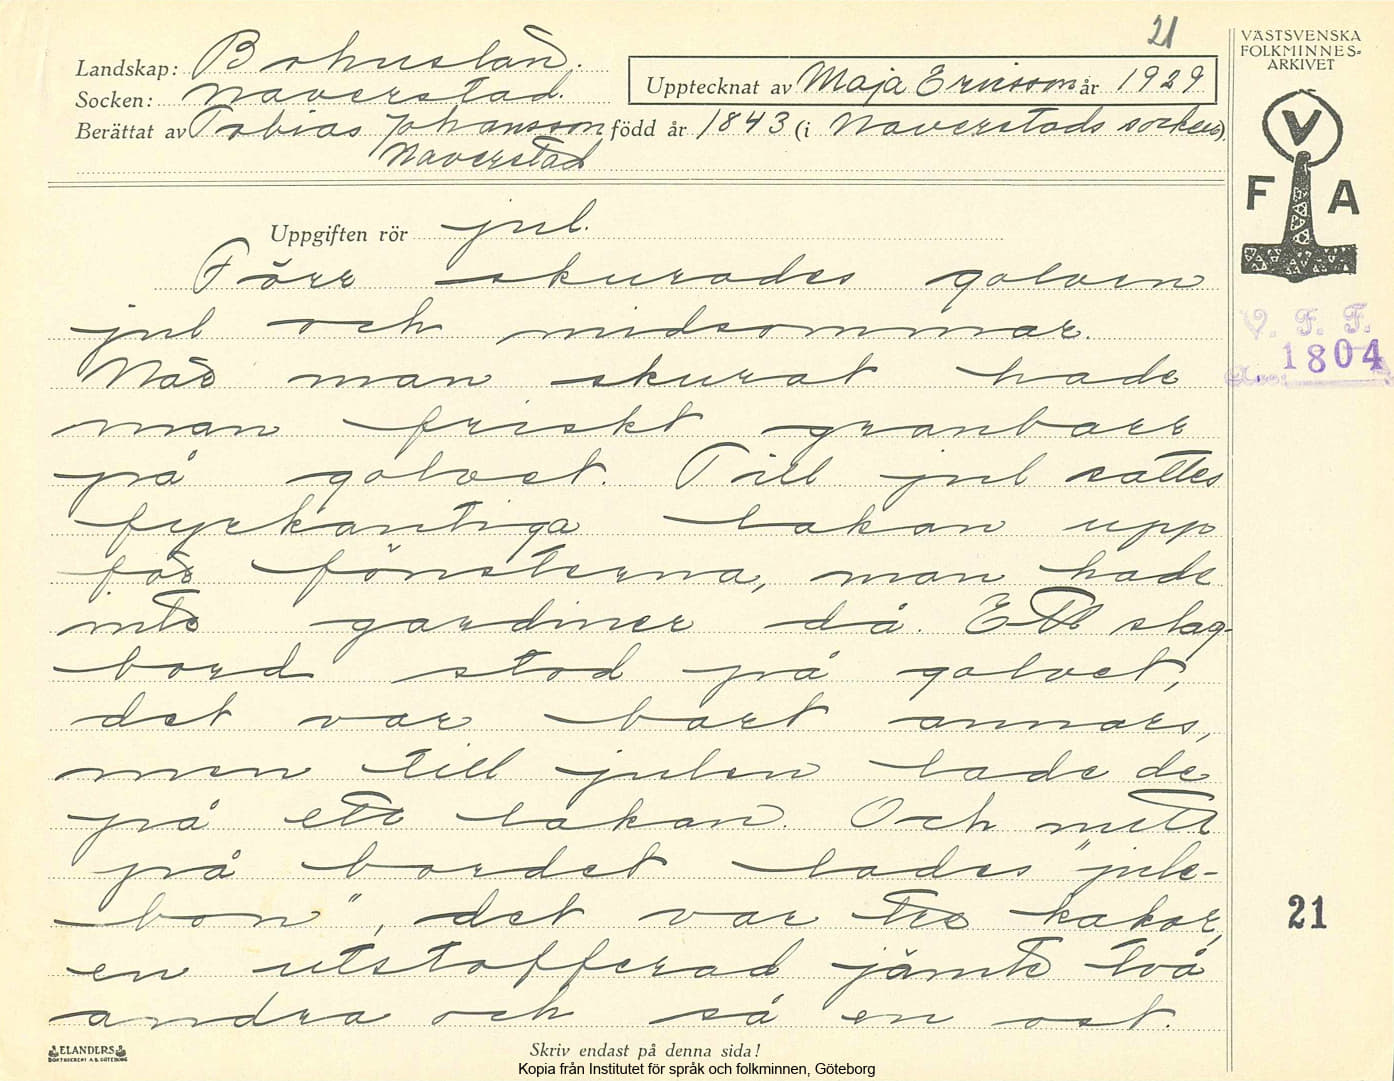 21
VÄSTSVENSKA
FOLKMINNES=
ARKIVET
Landskap: Bohuslän.
Upptecknat av Maja Ericson år 1929
Socken: Naverstad.
Berättat av Tobias Johansson född år 1843 (i Naverstads socken).
Naverstad
V
F A
Uppgiften rör jul.
Förr skurades golven
jul och midsommar.
V. F. F.
1804
När man skurat hade
man friskt granbarr
på golvet. Till jul sattes
fyrkantiga lakan upp
för fönsterna, man hade
inte gardiner då. Ett slag-
bord stod på golvet,
det var bart annars,
men till julen lade de
på ett lakan. Och mitt
på bordet lades "jule-
bon", det var tre kakor,
21
en utstofferad jämte två
andra och så en ost.
ELANDERS
Skriv endast på denna sida!
Kopia från Institutet för språk och folkminnen, Göteborg